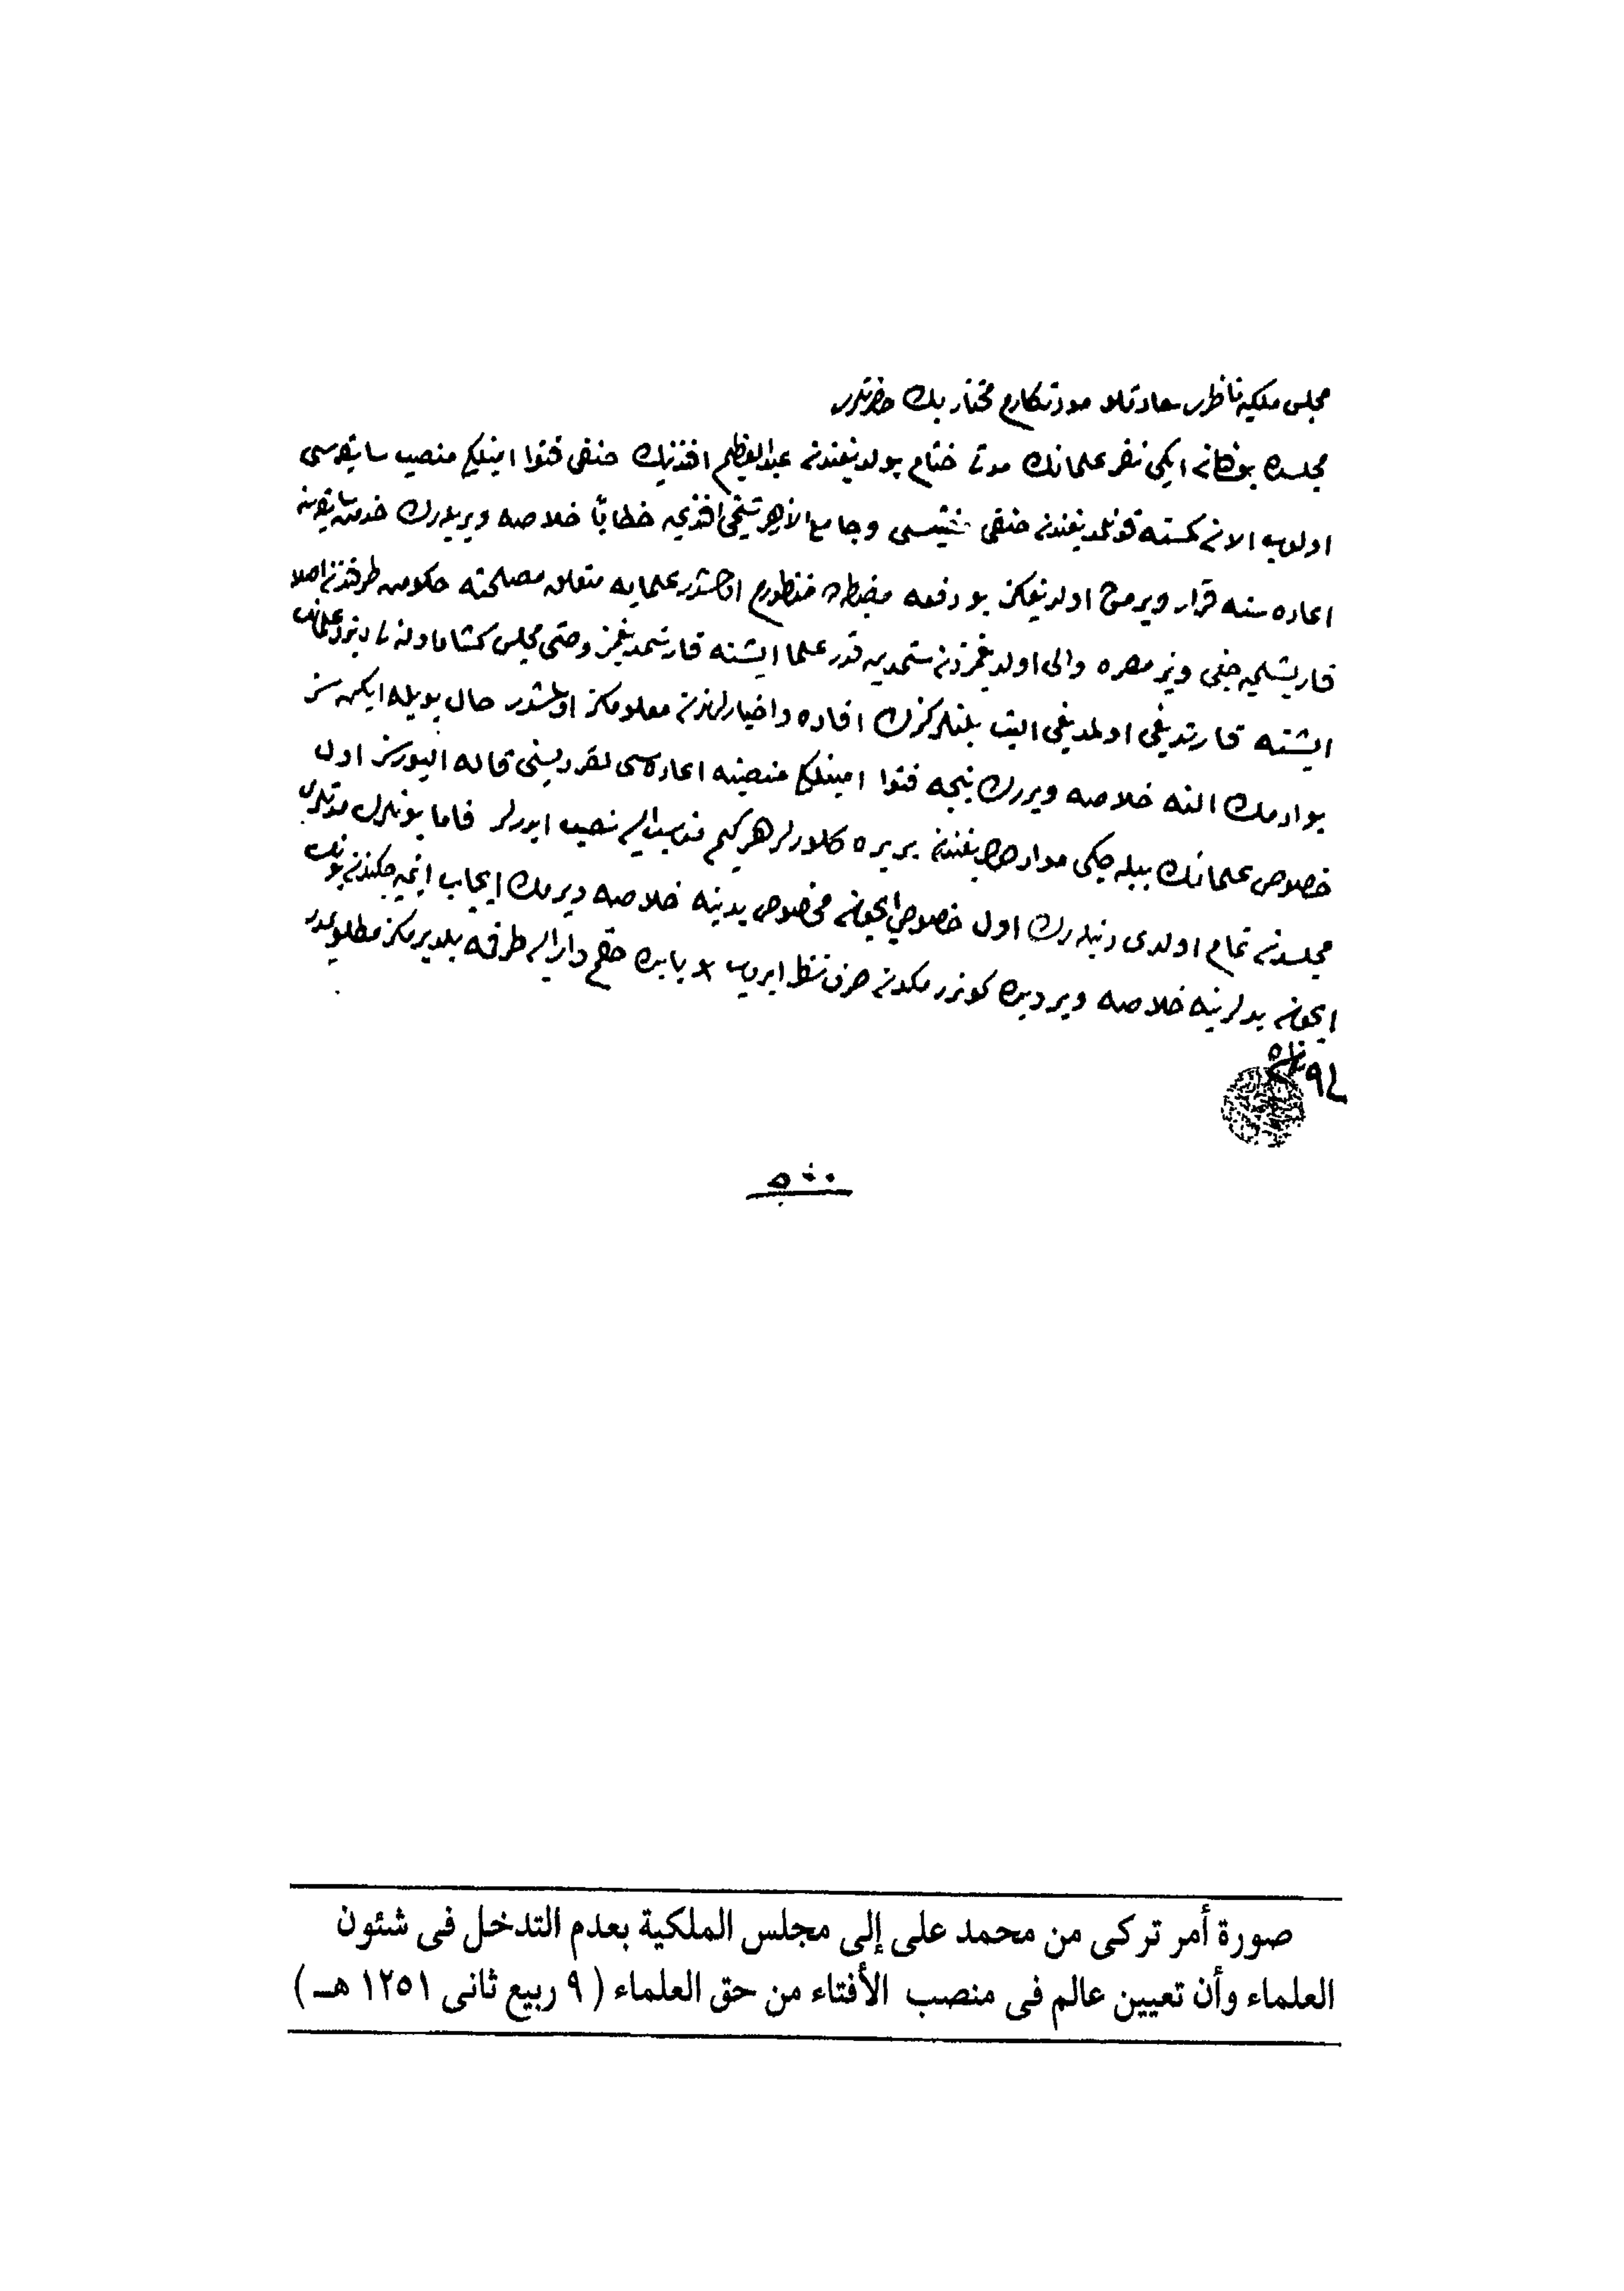 مجلس ملكيه ناظرى سعادتلو مودتكارم مختار بك حضرتلرى
مجلسده بولنان ايكى نفر علمانك مدتى ختام بولديغندن عبد العظيم افندينك حنفى فتوا امينلكى منصب سابقه سى
اولوب الان كمسنه قونلمديغندن حنفى مفتيسى وجامع الازهر شيخى افندى يه خطابا خلاصه ويريلەرك خدمت سابقه سنه
اعاده سنه قرار ويرمش اولديغكز بو دفعه مضبطه ده منظورم اولمشدر علمايه متعلق مصلحته حكومت طرفندن اصلا
قاريشلميه جغى ونيز مصره والى اولديغمزدن شمديه قدر علما ايشنه قارشمديغمز وحتى مجلس كشاد اولنه لى دخى علمانك
ايشنه قارشديغى اولمديغى اليق بلنلركزك افاده واخبارلرندن معلومكز اولمشدر حال بويله ايكن سز
بو ادمك النه خلاصه ويررك نيجه فتوا امينلكى منصبنه اعاده سى لقرديسنى قاله اليورسز اول
خصوص علمانك بيله جكى مواددن اولديغندن بر يره كلورلر هركيم مناسب ايسه نصب ايدرلر فاما بونلرك مدتلرى
مجلسدن تمام اولدى دنيلەرك اول خصوص ايچون مخصوص يدينه خلاصه ويرمك ايجاب ايتميه جكندن بونك
ايچون يدلرينه خلاصه ويرديره كوندرمكدن صرف نظر ايدوب بو بابده حقم دار ايسه طرفمه بلديرمكز مطلوبمدر
صورة أمر تركى من محمد على إلى مجلس الملكية بعدم التدخل فى شئون
العلماء وأن تعيين عالم فى منصب الأفتاء من حق العلماء ( ٩ ربيع ثانى ١٢٥١ هـ )